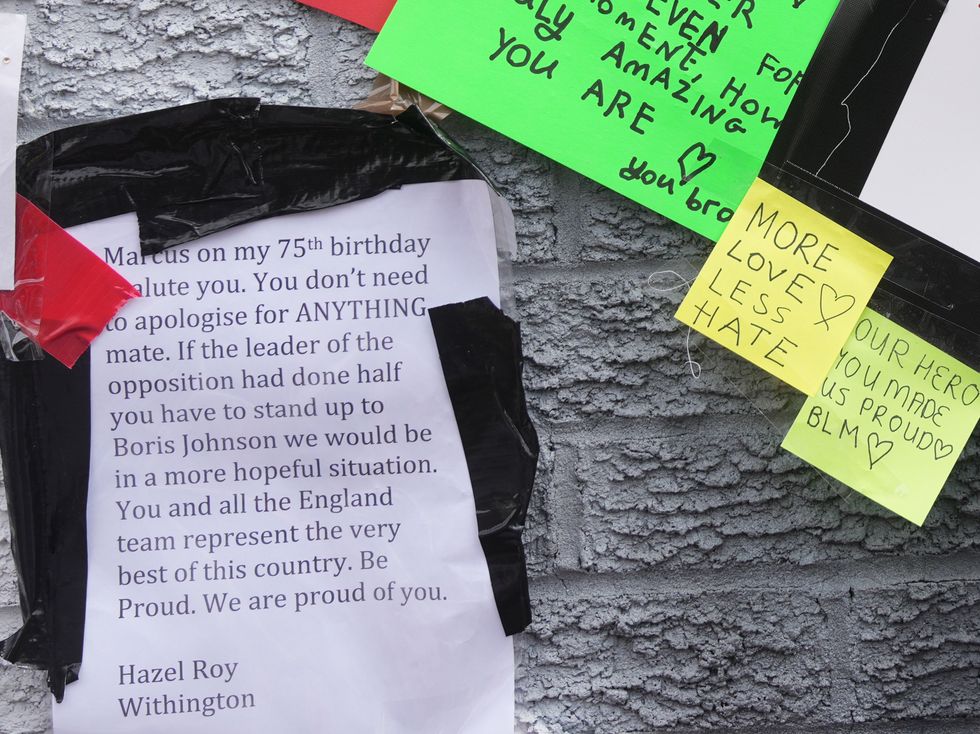 Marcus on my 75th birthday
alute you. You don't need
to apologise for ANYTHING
mate. If the leader of the
opposition had done half
you have to stand up to
Boris Johnson we would be
in a more hopeful situation.
You and all the England
team represent the very
best of this country. Be
Proud. We are proud of you.
Hazel Roy
Withington
EVEN FOR
MOMENT, HOW
AMAZING
YOU
ARE ♡
you bro
MORE
LOVE
LESS ♡
HATE
OUR HERO
YOU MADE
US PROUD♡
BLM♡